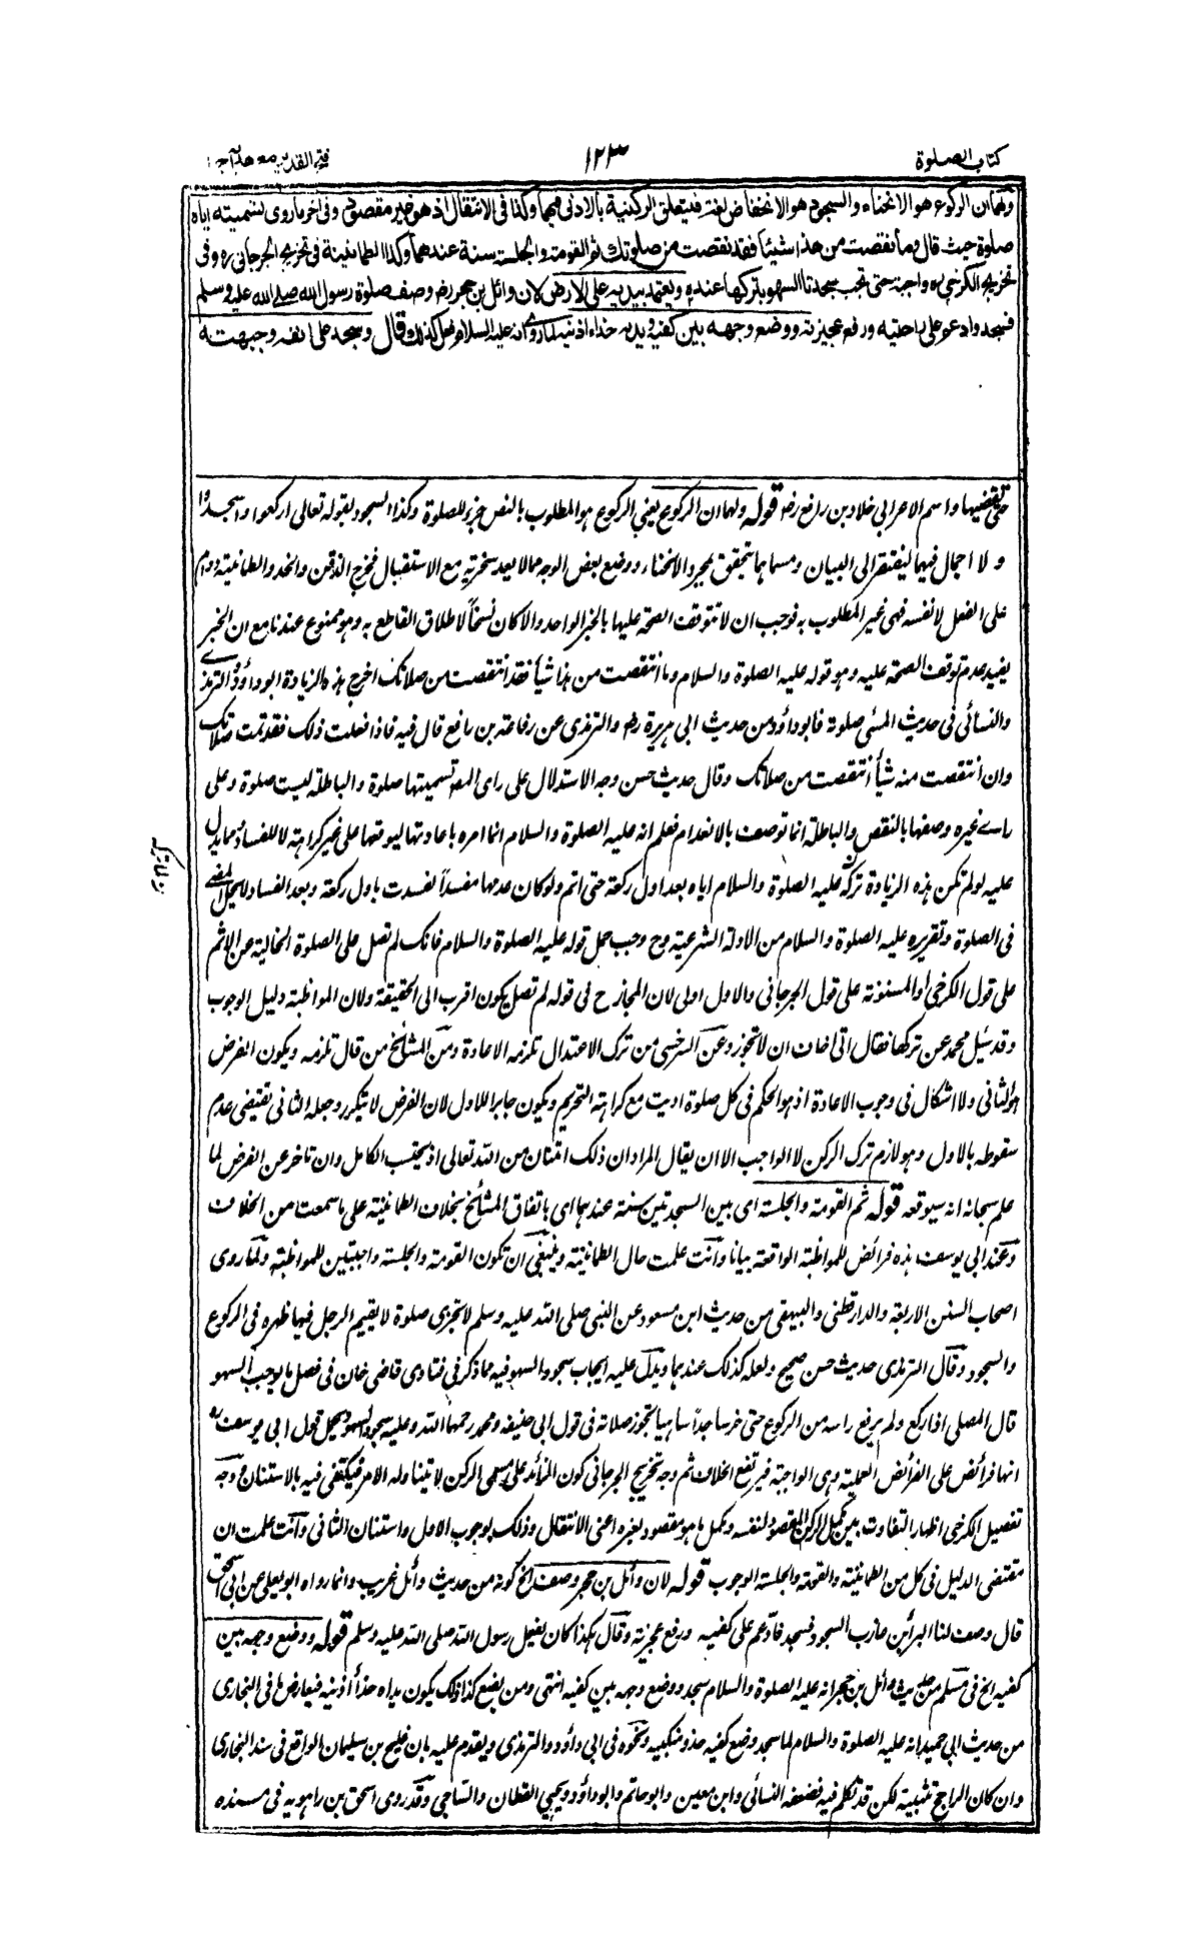 كتاب الصلوة
١٢٣
فتح القدير مع هدايه ج ١
ولهما ان الركوع هو الانحناء والسجود هو الانخفاض لغة فتتعلق الركنية بالادنى فيهما وكذا فى الانتقال اذ هو غير مقصود وفى اخر ما روى تسميته اياه
صلوة حيث قال وما نقصت من هذا شيئا فقد نقصت من صلوتك ثم القومة والجلسة سنة عندهما وكذا الطمانينة فى تخريج الجرجانى ره وفى
تخريج الكرخى ره واجبة حتى تجب سجدتا السهو بتركها عنده ويعتمد بيديه على الارض لان وائل بن حجر رض وصف صلوة رسول الله صلى الله عليه وسلم
فسجد وادعم على راحتيه ورفع عجيزته ووضع وجهه بين كفيه ويديه حذاء اذنيه لما روى انه عليه السلام فعل كذلك قال وسجد على انفه وجبهته
حتى تقضيها واسم الاعرابى خلاد بن رافع رض قوله ولهما ان الركوع يعنى الركوع هو المطلوب بالنص جزء للصلوة وكذا السجود بقوله تعالى اركعوا واسجدوا
ولا اجمال فيهما ليفتقر الى البيان ومسماهما يتحقق بمجرد الانحناء ووضع بعض الوجه مما لا يعد سخرية مع الاستقبال فخرج الذقن والخد والطمانينة دوام
على الفعل لا نفسه فهى غير المطلوب به فوجب ان لا تتوقف الصحة عليها بالخبر الواحد والا كان نسخاً لاطلاق القاطع به وهو ممنوع عندنا مع ان الخبر
يفيد عدم توقف الصحة عليه وهو قوله عليه الصلوة والسلام وما انتقصت من هذا شيأ فقد انتقصت من صلاتك اخرج هذه الزيادة ابو داؤد والترمذى
والنسائى فى حديث المسئ صلوته فابو داؤد من حديث ابى هريرة رض والترمذى عن رفاعة بن رافع قال فيه فاذا فعلت ذلك فقد تمت صلاتك
وان انتقصت منه شيأ انتقصت من صلاتك وقال حديث حسن وجه الاستدلال على راى المص تسميتها صلوة والباطلة ليست صلوة وعلى
راى غيره وصفها بالنقص والباطلة انما توصف بالانعدام فعلم انه عليه الصلوة والسلام انما امره باعادتها ليوقعها على غير كراهة لا للفساد ومما يدل
عليه لو لم تكن هذه الزيادة تركه عليه الصلوة والسلام اياه بعد اول ركعة حتى اتم ولو كان عدمها مفسداً لفسدت باول ركعة وبعد الفساد لا يحل المضى
فى الصلوة وتقريره عليه الصلوة والسلام من الادلة الشرعية وح وجب حمل قوله عليه الصلوة والسلام فانك لم تصل على الصلوة الخالية عن الاثم
على قول الكرخى او المسنونة على قول الجرجانى والاول اولى لان المجاز ح فى قوله لم تصل يكون اقرب الى الحقيقة ولان المواظبة دليل الوجوب
وقد سئل محمد عن تركها فقال انى اخاف ان لا تجوز وعن السرخسى من ترك الاعتدال تلزمه الاعادة ومن المشائخ من قال تلزمه ويكون الفرض
هو الثانى ولا اشكال فى وجوب الاعادة اذ هو الحكم فى كل صلوة اديت مع كراهة التحريم ويكون جابرا للاول لان الفرض لا يتكرر وجعله الثانى يقتضى عدم
سقوطه بالاول وهو لازم ترك الركن لا الواجب الا ان يقال المراد ان ذلك امتنان من الله تعالى اذ يحتسب الكامل وان تاخر عن الفرض لما
علم سبحانه انه سيوقعه قوله ثم القومة والجلسة اى بين السجدتين سنة عندهما اى باتفاق المشائخ بخلاف الطمانينة على ما سمعت من الخلاف
وعند ابى يوسف هذه فرائض للمواظبة الواقعة بيانا وانت علمت حال الطمانينة وينبغى ان تكون القومة والجلسة واجبتين للمواظبة ولما روى
اصحاب السنن الاربعة والدارقطنى والبيهقى من حديث ابن مسعود عن النبى صلى الله عليه وسلم لا تجزى صلوة لا يقيم الرجل فيها ظهره فى الركوع
والسجود وقال الترمذى حديث حسن صحيح ولعله كذلك عندهما ويدل عليه ايجاب سجود السهو فيه مما ذكر فى فتاوى قاضى خان فى فصل ما يوجب السهو
قال المصلى اذا ركع ولم يرفع راسه من الركوع حتى خر ساجداً ساهيا تجوز صلاته فى قول ابى حنيفة ومحمد رحمهما الله وعليه سجود السهو ويحمل قول ابى يوسف ره
انها فرائض على الفرائض العملية وهى الواجبة فيرتفع الخلاف ثم وجه تخريج الجرجانى كون الزائد على مسمى الركن لا يتناوله الامر فيكتفى فيه بالاستنان ووجه
تفصيل الكرخى اظهار التفاوت بين مكمل الركن المقصود لنفسه ومكمل ما هو مقصود لغيره اعنى الانتقال وذلك بوجوب الاول واستنان الثانى وانت علمت ان
مقتضى الدليل فى كل من الطمانينة والقومة والجلسة الوجوب قوله لان وائل بن حجر وصف الخ كونه من حديث وائل غريب وانما رواه ابو يعلى عن ابى اسحق
قال وصف لنا البراء بن عازب السجود فسجد فادعم على كفيه ورفع عجيزته وقال هكذا كان يفعل رسول الله صلى الله عليه وسلم قوله ووضع وجهه بين
كفيه الخ فى مسلم من حديث وائل بن حجر انه عليه الصلوة والسلام سجد ووضع وجهه بين كفيه انتهى ومن يضع كذلك يكون يداه حذاء اذنيه فيعارض ما فى البخارى
من حديث ابى حميد انه عليه الصلوة والسلام لما سجد وضع كفيه حذو منكبيه ونحوه فى ابى داؤد والترمذى ويقدم عليه بان فليح بن سليمان الواقع فى سند البخارى
وان كان الراجح تثبيته لكن قد تكلم فيه فضعفه النسائى وابن معين وابو حاتم وابو داؤد ويحيى القطان والساجى وقد روى اسحق بن راهويه فى مسنده